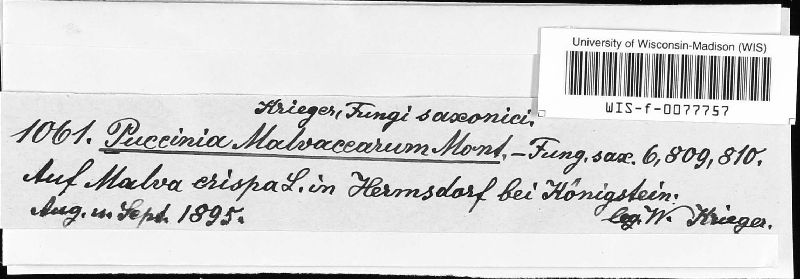 University of Wisconsin-Madison (WIS)
WIS-f-0077757
Krieger, Fungi saxonici.
1061. Puccinia Malvacearum Mont. – Fung. sax. 6, 809, 810.
Auf Malva crispa L. in Hermsdorf bei Königstein.
Aug. u. Sept. 1895.
leg. W. Krieger.